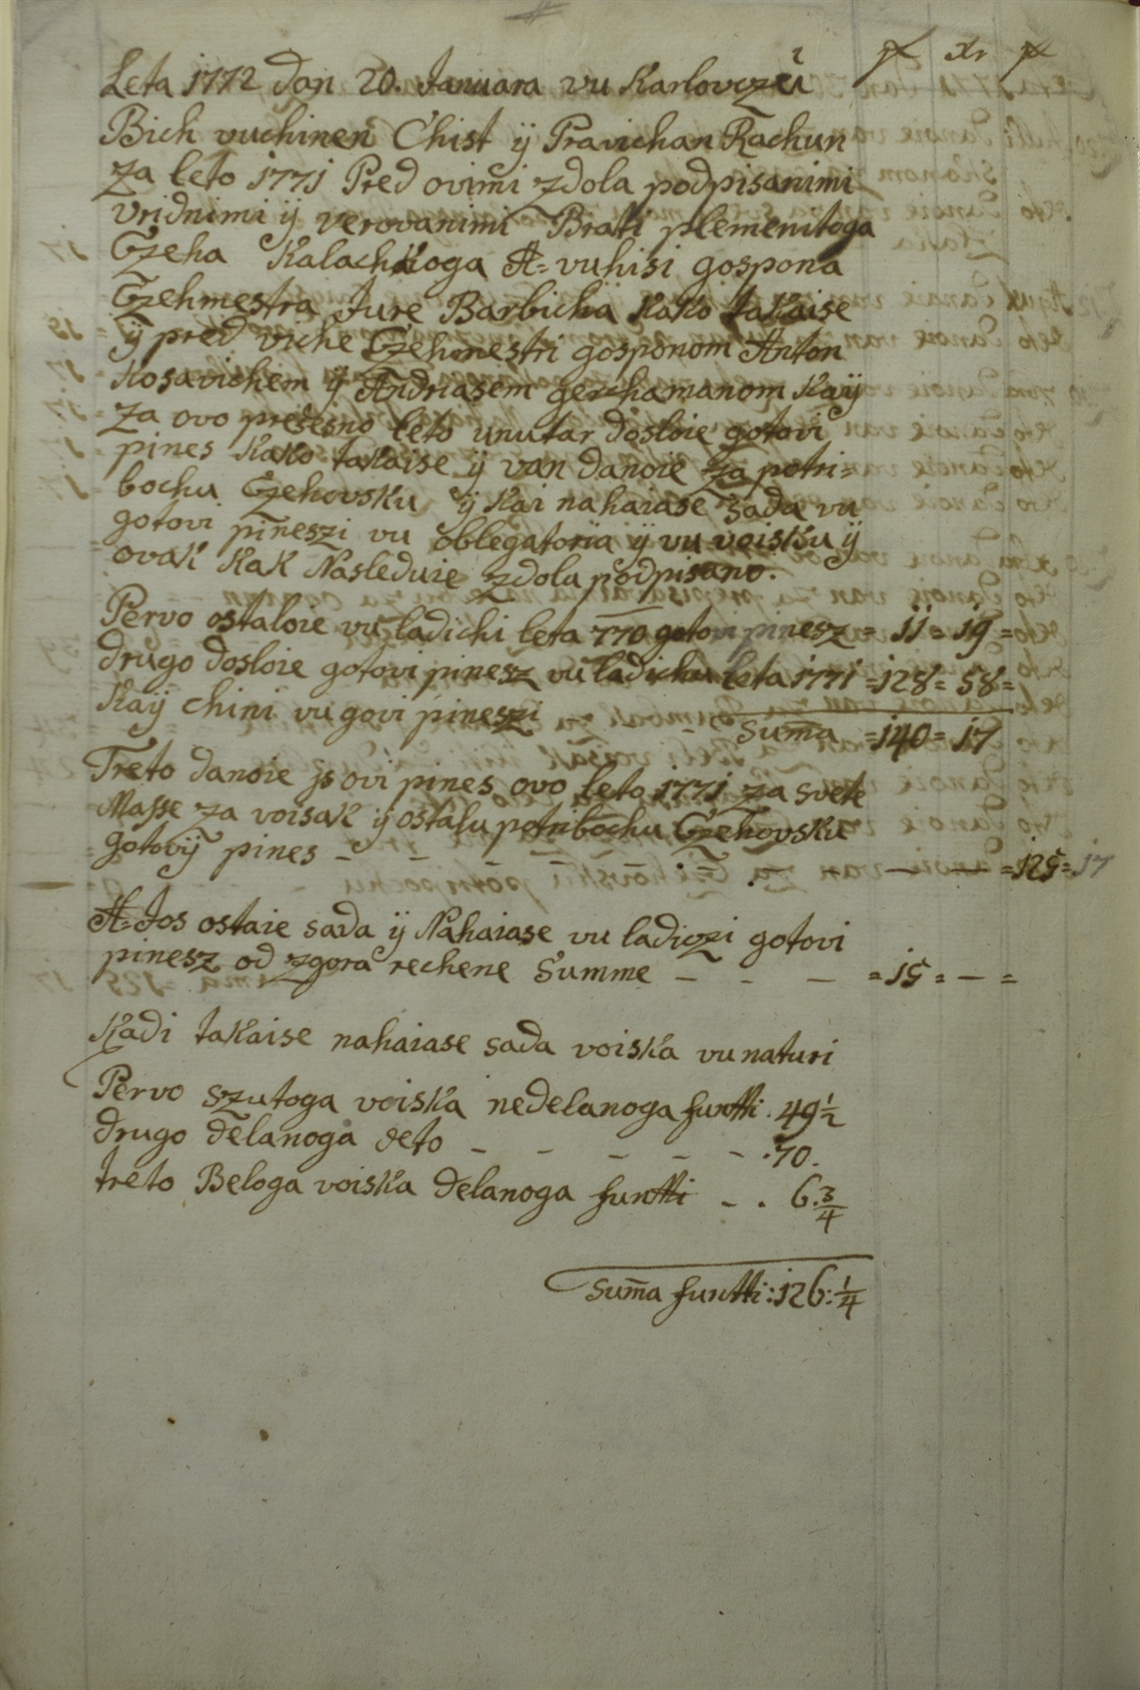 fl xr fl
Leta 1772 dan 20. Januara vu Karlovczi
Bich vuchinen Chist ÿ Pravichan Rachun
Za leto 1771 Pred ovimi zdola podpisanimi
vridnimi ÿ verovanimi Brati plemenitoga
Czeha Kalachkoga A= vuhisi gospona
Czehmestra Jure Barbicha kako takaise
ÿ pred viche Czehmestri gosponom Anton
Kosavichem ÿ Andriasem gerchamanom Kaÿ
Za ovo presesno leto unutar dosloie gotovi
pines Kako takaise ÿ van danoie za potri=
bochu Czehovsku ÿ kai nahaiase sada vu
gotovi pineszi vu oblegatoria ÿ vu voisku ÿ
ovak kak Nasleduie zdola podpisano.
Pervo ostaloie vu ladichi leta 770 gotovi pinesz = 11 = 19 =
drugo dosloie gotovi pinesz vu ladichu leta 1771 = 128 = 58 =
Kaÿ chini vu govi pineszi - Suma = 140 = 17
Treto danoie js ovi pines ovo leto 1771 za svete
Masse za voisak ÿ ostalu potribochu Czehovsku
gotovÿ pines - - - - - - = 125 = 17
A= Jos ostaie sada ÿ Nahaiase vu ladiczi gotovi
pinesz od zgora rechene Summe - - - = 15 = - =
Kadi takaise nahaiase sada voiska vu naturi
Pervo szutoga voiska nedelanoga funtti . 49 1/2
drugo delanoga deto - - - - - . 70.
treto Beloga voiska delanoga funtti - . 6. 3/4
Suma funtti : 126 : 1/4